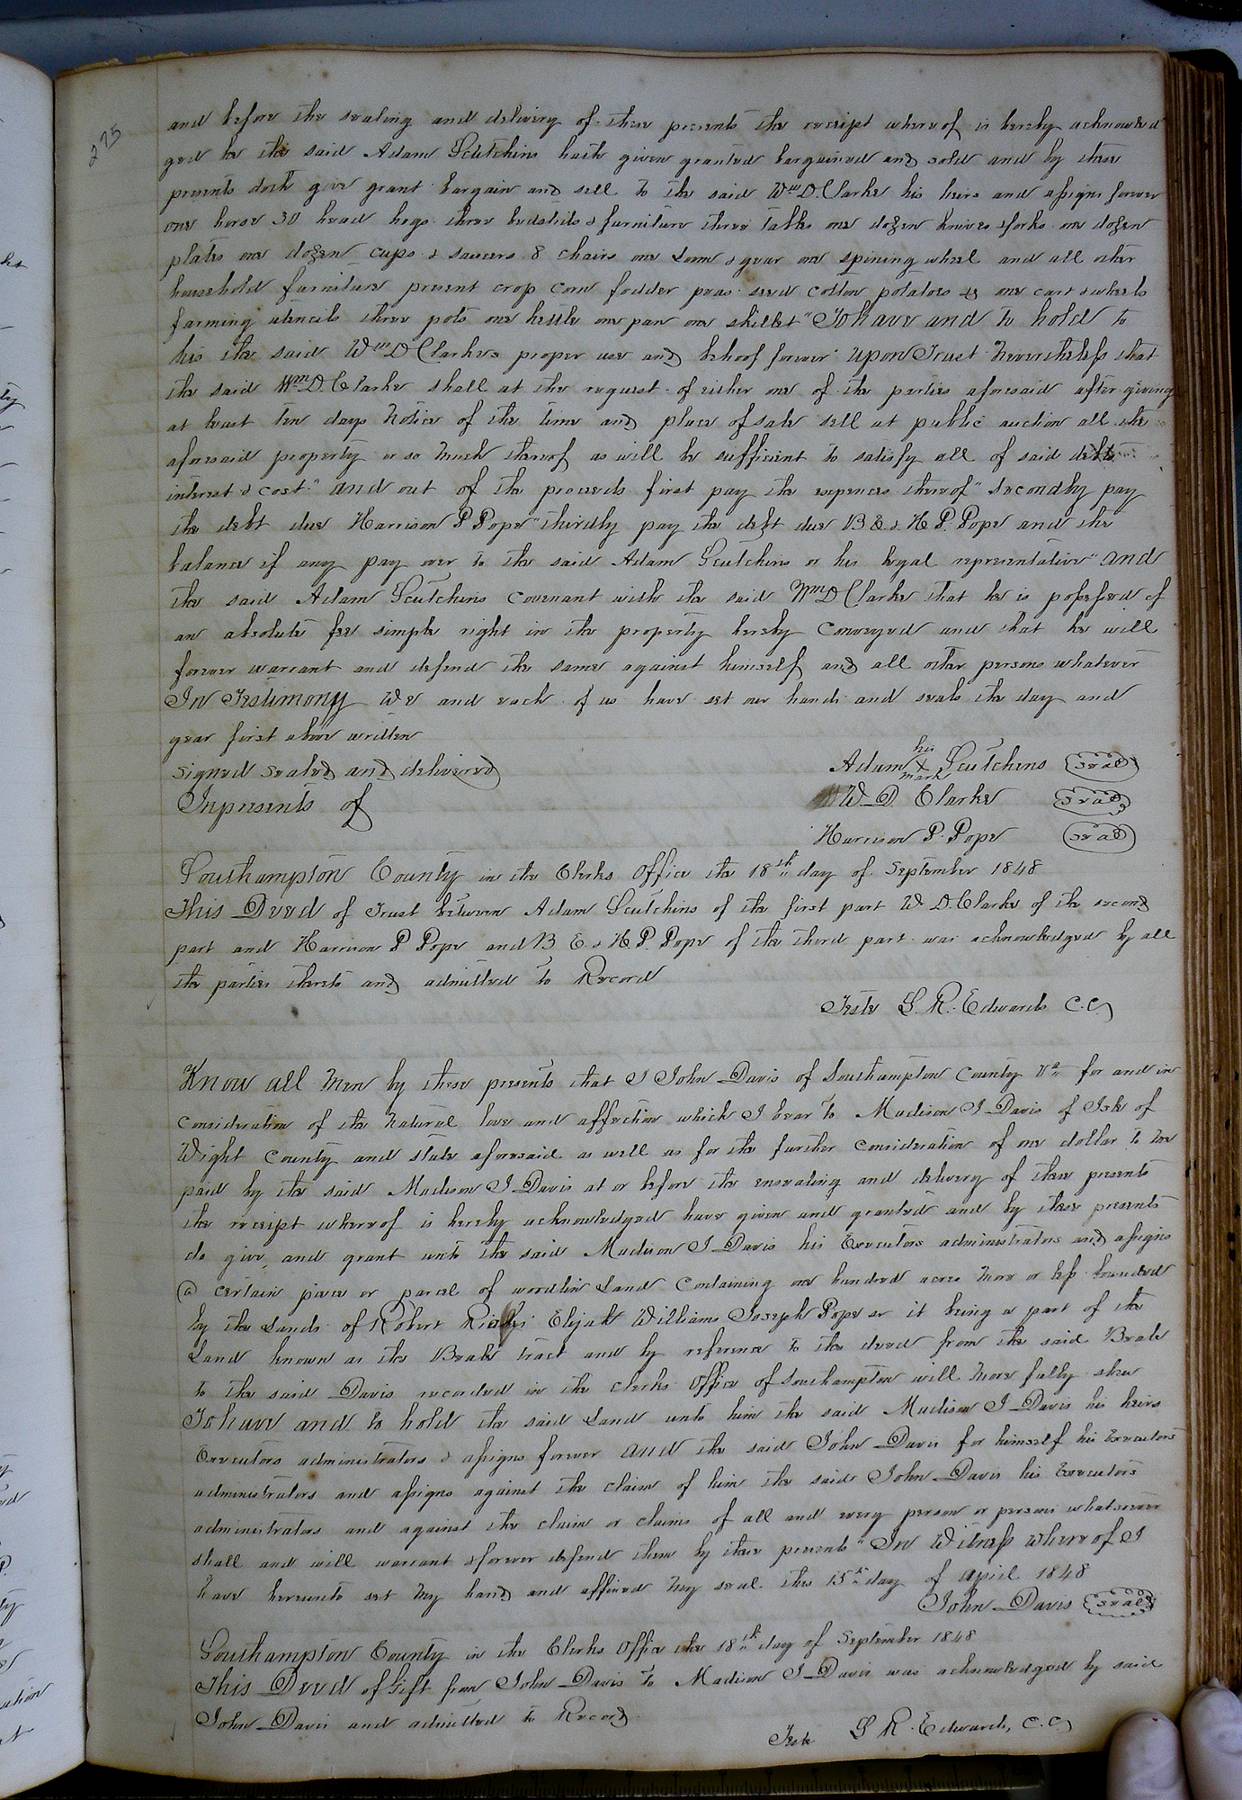 275
and before the sealing and delivering of these presents the receipt whereof is hereby acknowled
ged he the said Adam Scutchins hath given granted bargained and sold and by these
presents doth give grant bargain and sell to the said Wm D. Clarke his heirs and assigns forever
one horse 30 head hogs three bedsteds & furniture three tables one dozen knives & forks one dozen
plates one dozen cups & saucers 8 chairs one Loom & gear one spining wheel and all other
household furniture present crop corn fodder peas seed cotton potatoes & one cart & wheels
farming utencils three pots one kettle one pan one skillet "To have and to hold to
his the said Wm D Clarke's proper use and behoof forever" upon Trust Nevertheless that
the said Wm D. Clarke shall at the request of either one of the parties aforesaid after giving
at least ten days Notice of the time and place of sale sell at public auction all the
aforesaid property or so much thereof as will be sufficient to satisfy all of said debts
interest & cost" and out of the proceeds first pay the expences thereof" secondly pay
the debt due Harrison P Pope" thirdly pay the debt due B E. & H P. Pope and the
balance if any pay over to the said Adam Scutchins or his legal representative" and
the said Adam Scutchins covenant with the said Wm D Clarke that he is possessed of
an absolute fee simple right in the property hereby conveyed and that he will
forever warrant and defend the same against himself and all other persons whatever
In Testimony We and each of us have set our hands and seals the day and
year first above written
Signed sealed and delivered Adam his X mark Scutchins (seal)
In presents of W. D. Clarke (seal)
Harrison P. Pope (seal)
Southampton County in the Clerks Office the 18th day of September 1848
This Deed of Trust between Adam Scutchins of the first part W. D. Clarke of the second
part and Harrison P Pope and B E & H P. Pope of the third part was acknowledged by all
the parties thereto and admitted to Record
Teste L. R. Edwards C.C.
Know all Men by these presents that I John Davis of Southampton County Va for and in
consideration of the Natural love and affection which I bear to Madison J Davis of Isle of
Wight County and state aforesaid as well as for the further consideration of one dollar to me
paid by the said Madison J Davis at or before the ensealing and delivery of these presents
the receipt whereof is hereby acknowledged have given and granted and by these presents
do give, and grant unto the said Madison J. Davis his Executors administrators and assigns
a certain piece or parcel of woodlin Land Containing one hundred acres More or less bounded
by the Lands of Robert Elijah Williams Joseph Pope sr it being a part of the
Land known as the Beale tract and by reference to the deed from the said Beale
to the said Davis recorded in the clerks office of Southampton will More fully shew
To have and to hold the said Land unto him the said Madison J Davis his heirs
Executors administrators & assigns forever and the said John Davis for himself his Executors
administrators and assigns against the claim of him the said John Davis his Executors
administrators and against the claim or claims of all and every person or persons whatsoever
shall and will warrant & forever defend them by these presents" In Witness whereof I
have hereunto set My hand and affixed My seal this 15th day of april 1848
John Davis (seal)
Southampton County in the Clerks Office the 18th day of September 1848
This Deed of Gift from John Davis to Madison J Davis was acknowledged by said
John Davis and admitted to Record
Teste L R. Edwards, C.C.